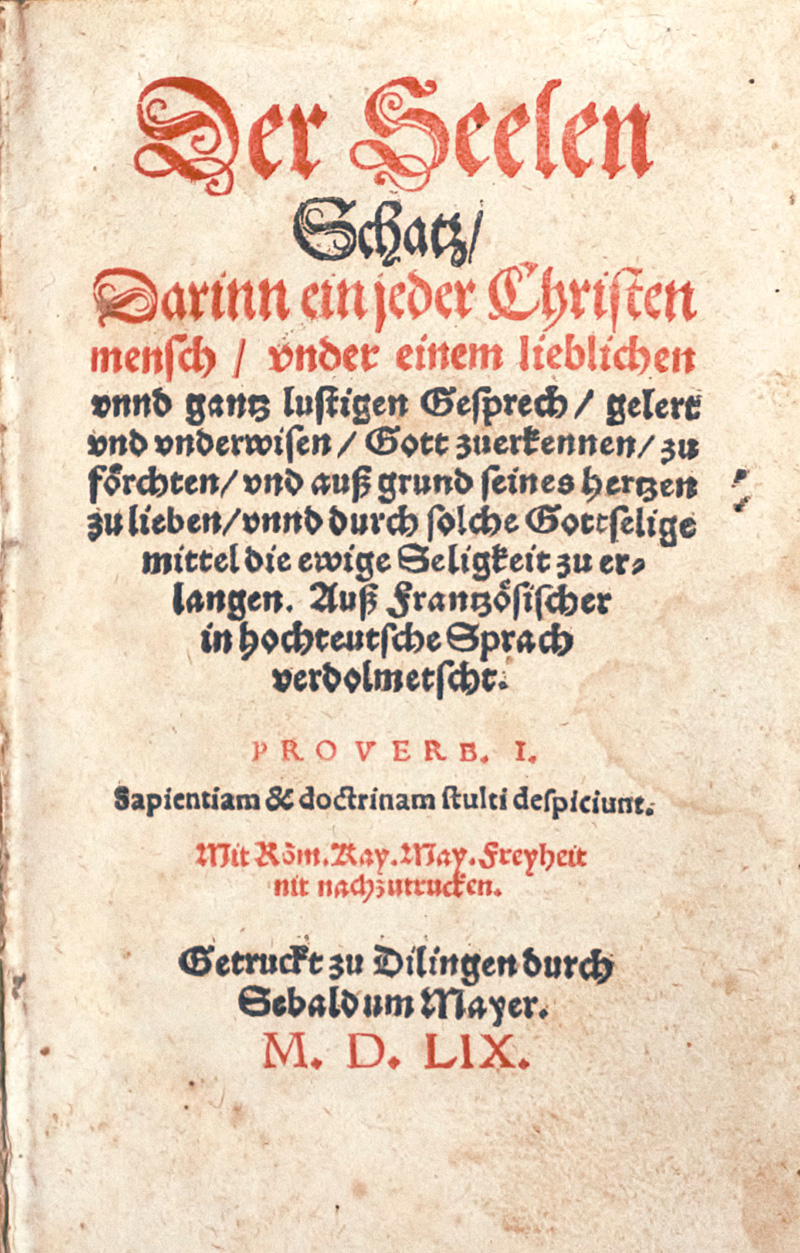 Der Seelen
Schatz/
Darinn ein jeder Christen
mensch / vnder einem lieblichen
vnnd gantz lustigen Gesprech / gelert
vnd vnderwisen / Gott zuerkennen / zu
förchten / vnd auß grund seines hertzen
zu lieben / vnnd durch solche Gottselige
mittel die ewige Seligkeit zu er⸗
langen. Auß Frantzösischer
in hochteutsche Sprach
verdolmetscht.
PROVERB. I.
Sapientiam & doctrinam stulti despiciunt.
Mit Röm. Kay. May. Freyheit
nit nachzutrucken.
Getruckt zu Dilingen durch
Sebaldum Mayer.
M. D. LIX.